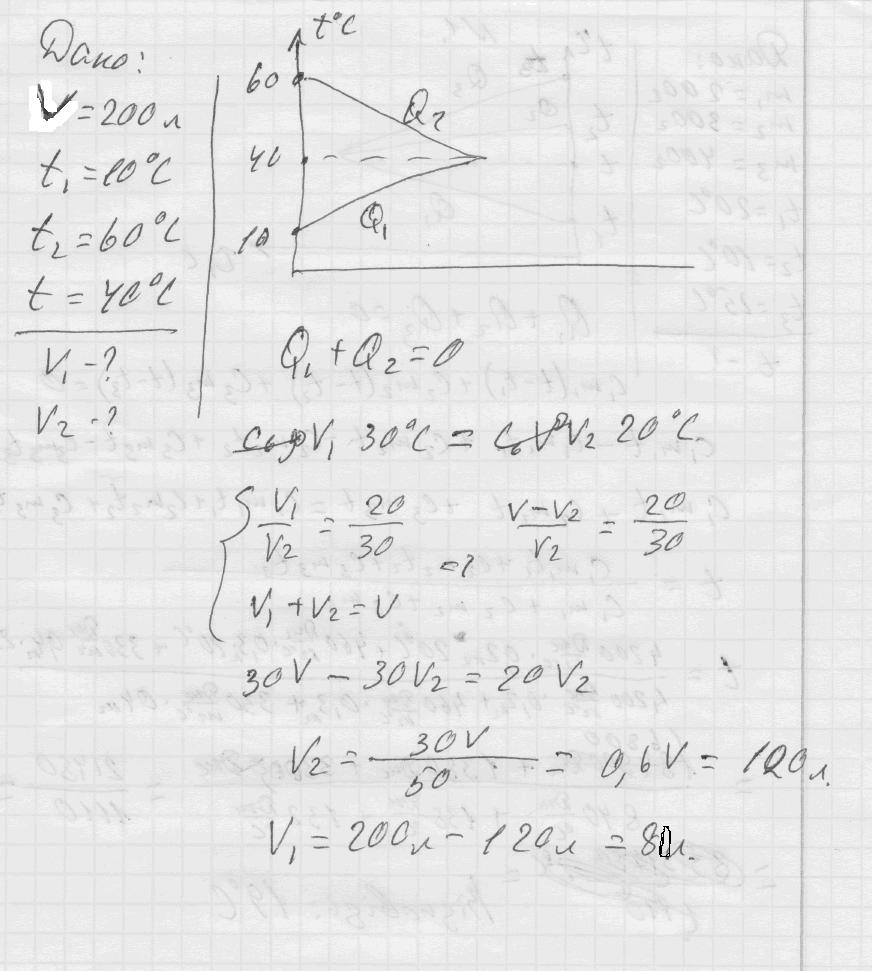 Дано:
V = 200 л
t₁ = 10°C
t₂ = 60°C
t = 40°C
V₁ - ?
V₂ - ?
t°C
60
Q₂
40
10
Q₁
Q₁ + Q₂ = 0
cρV₁ 30°C = cρV₂ 20°C
V₁/V₂ = 20/30
V₁ + V₂ = V
=>
(V - V₂)/V₂ = 20/30
30V - 30V₂ = 20V₂
V₂ = 30V/50 = 0,6V = 120 л.
V₁ = 200 л - 120 л = 80 л.